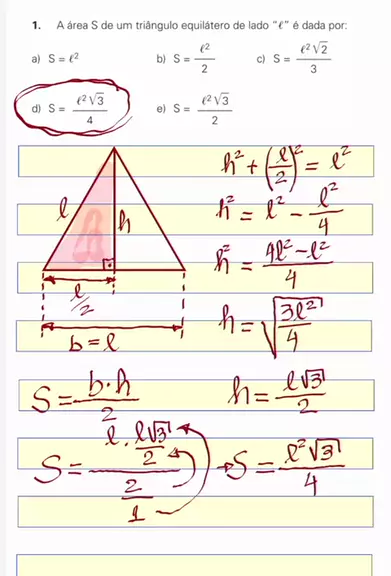 1. A área S de um triângulo equilátero de lado "ℓ" é dada por:
a) S = ℓ² b) S = ℓ²/2 c) S = ℓ²√2/3
d) S = ℓ²√3/4 e) S = ℓ²√3/2
h² + (ℓ/2)² = ℓ²
h² = ℓ² - ℓ²/4
h² = 4ℓ²-ℓ²/4
h = √3ℓ²/4
h = ℓ√3/2
ℓ
h
ℓ/2
b = ℓ
S = b·h/2
S = ℓ · ℓ√3/2 / 2/1 → S = ℓ²√3/4